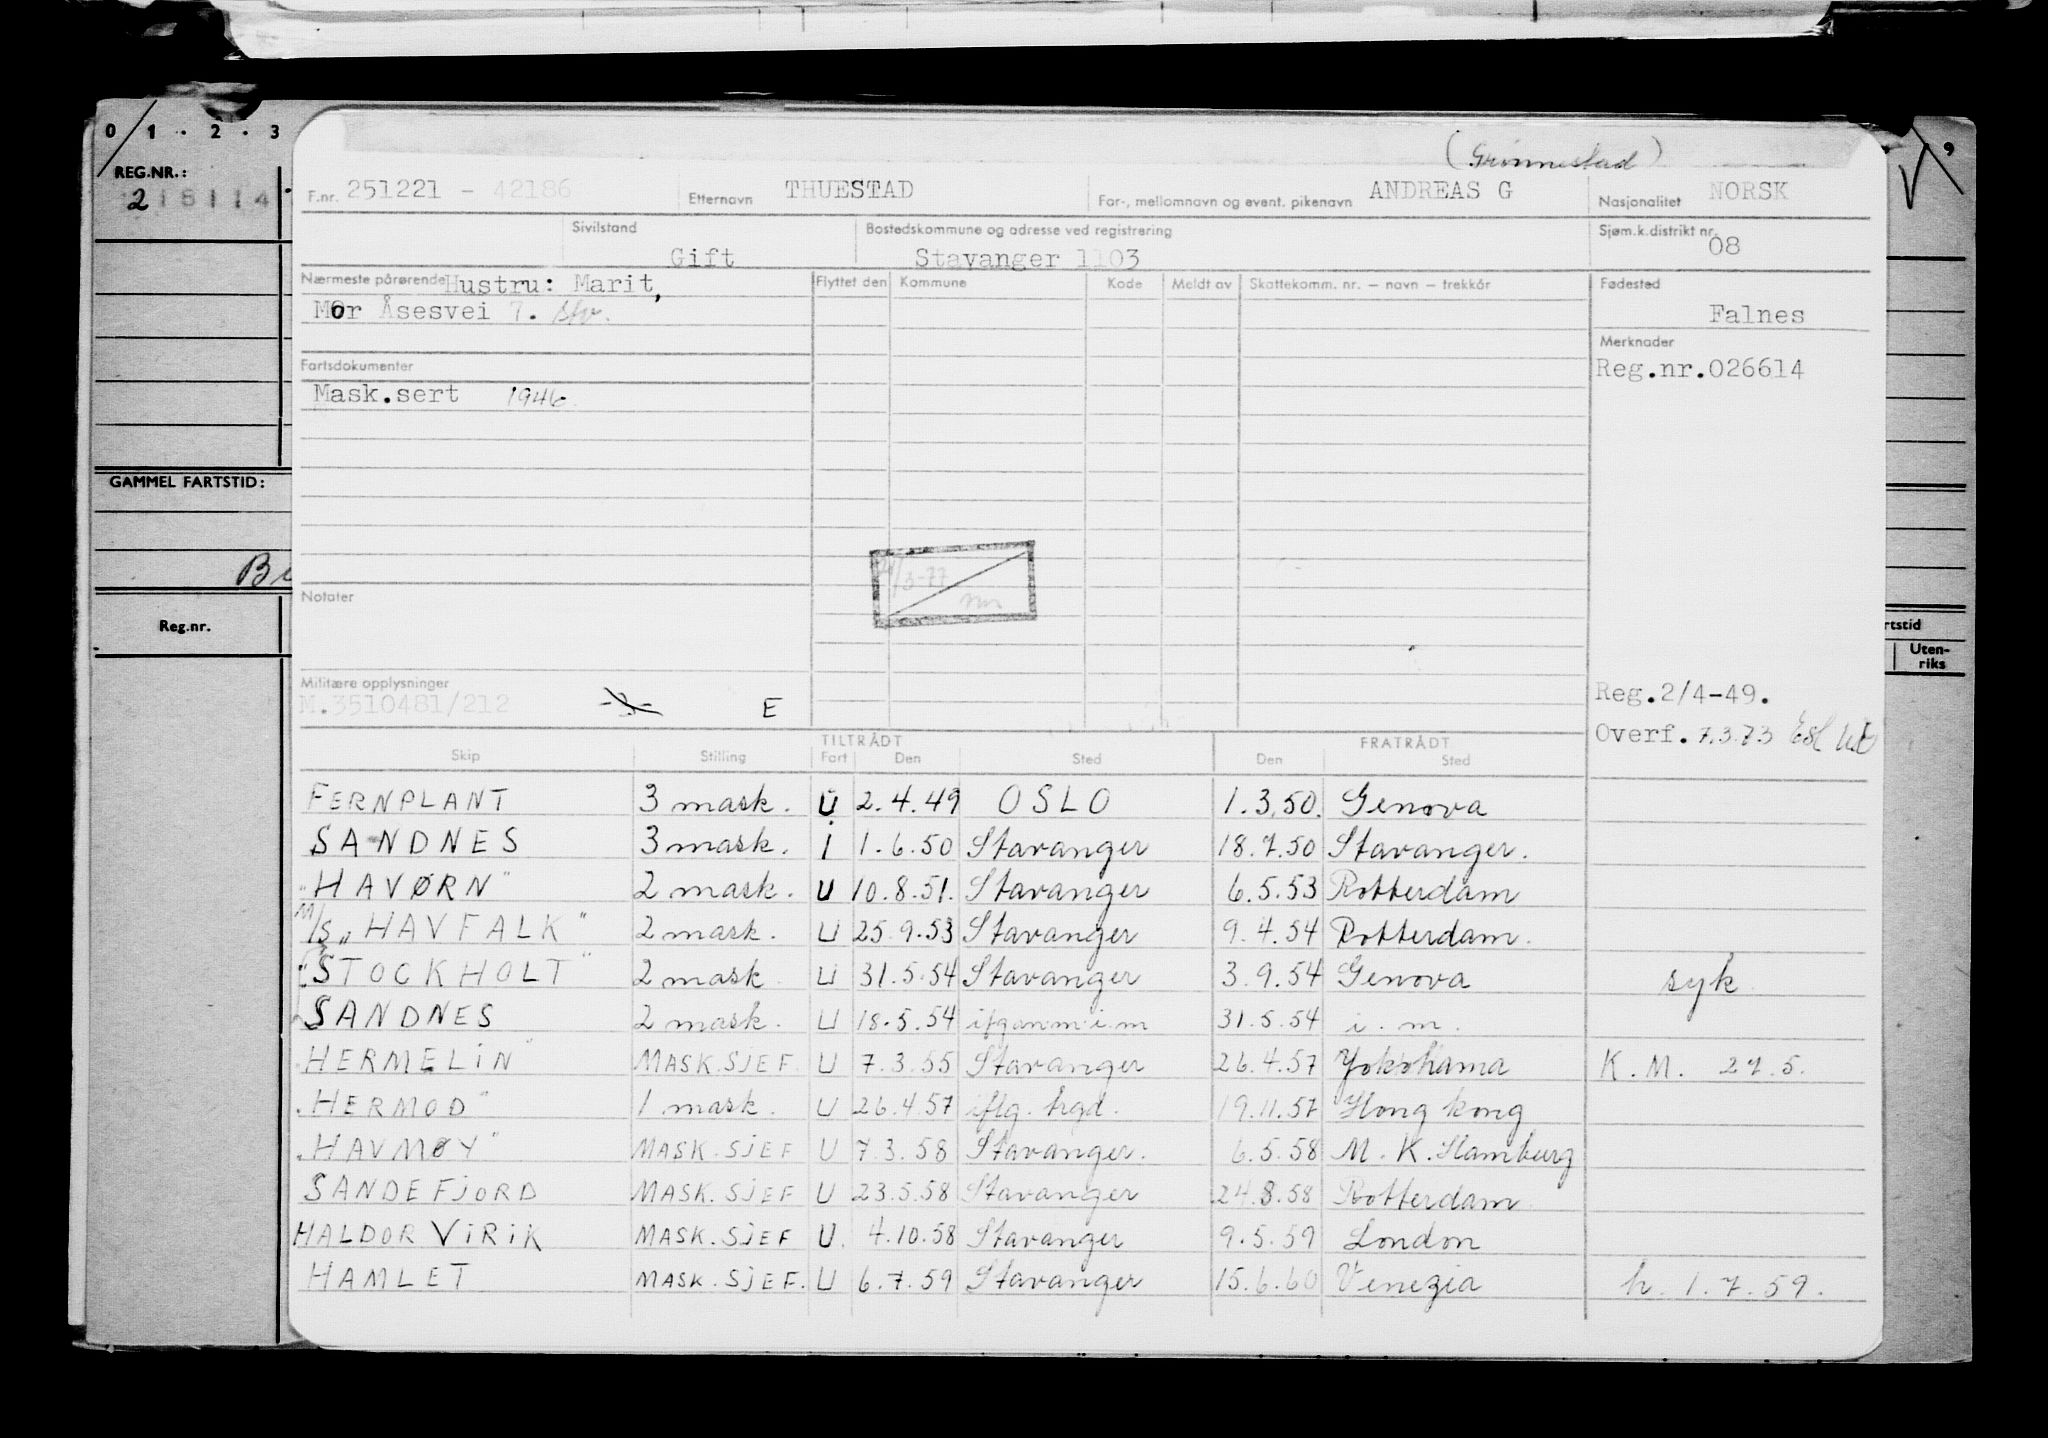 0 / 1 . 2 . 3
9
REG.NR.:
2 18114
GAMMEL FARTSTID:
Reg.nr.
rtstid
Uten-
riks
(Grinnestad)
F.nr. 251221 - 42186 Etternavn THUESTAD For-, mellomnavn og event. pikenavn ANDREAS G Nasjonalitet NORSK
Sivilstand Gift Bostedskommune og adresse ved registrering Stavanger 1103 Sjøm.k.distrikt nr. 08
Nærmeste pårørende Hustru: Marit, Flyttet den Kommune Kode Meldt av Skattekomm. nr. – navn – trekkår Fødested
Mor Åsesvei 7. Stv. Falnes
Merknader
Fartsdokumenter Reg.nr.026614
Mask.sert 1946
/3-77
Notater
Militære opplysninger
M.3510481/212 E Reg.2/4-49.
Overf. 7.3.73
TILTRÅDT FRATRÅDT
Skip Stilling Fart Den Sted Den Sted
FERNPLANT 3 mask. U 2.4.49 OSLO 1.3.50. Genova
SANDNES 3 mask. i 1.6.50 Stavanger 18.7.50 Stavanger.
"HAVØRN" 2 mask. U 10.8.51. Stavanger 6.5.53 Rotterdam
M/S "HAVFALK" 2 mask. U 25.9.53 Stavanger 9.4.54 Rotterdam.
"STOCKHOLT" 2 mask U 31.5.54 Stavanger 3.9.54 Genova syk
SANDNES 2 mask. U 18.5.54 31.5.54 i. m.
HERMELIN" MASK.SJEF. U 7.3.55 Stavanger 26.4.57 Yokohama K.M. 27.5.
"HERMOD" 1 mask. U 26.4.57 iflg. hgd. 19.11.57 Hong kong
"HAVMØY" MASK.SJEF U 7.3.58 Stavanger. 6.5.58 M.K. Hamburg
SANDEFJORD MASK.SJEF U 23.5.58 Stavanger 24.8.58 Rotterdam
HALDOR VIRIK MASK.SJEF U. 4.10.58 Stavanger 9.5.59 London
HAMLET MASK.SJEF. U 6.7.59 Stavanger 15.6.60 Venezia h. 1.7.59.